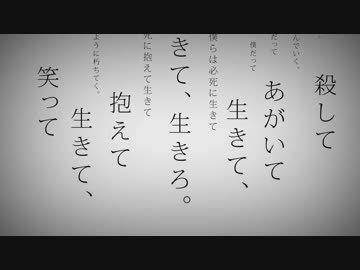 んでいく。
だって
殺して
僕だって
あがいて
生きて、
僕らは必死に生きて
きて、生きろ。
死に抱えて生きて
抱えて
ように朽ちてく。
生きて、
笑って